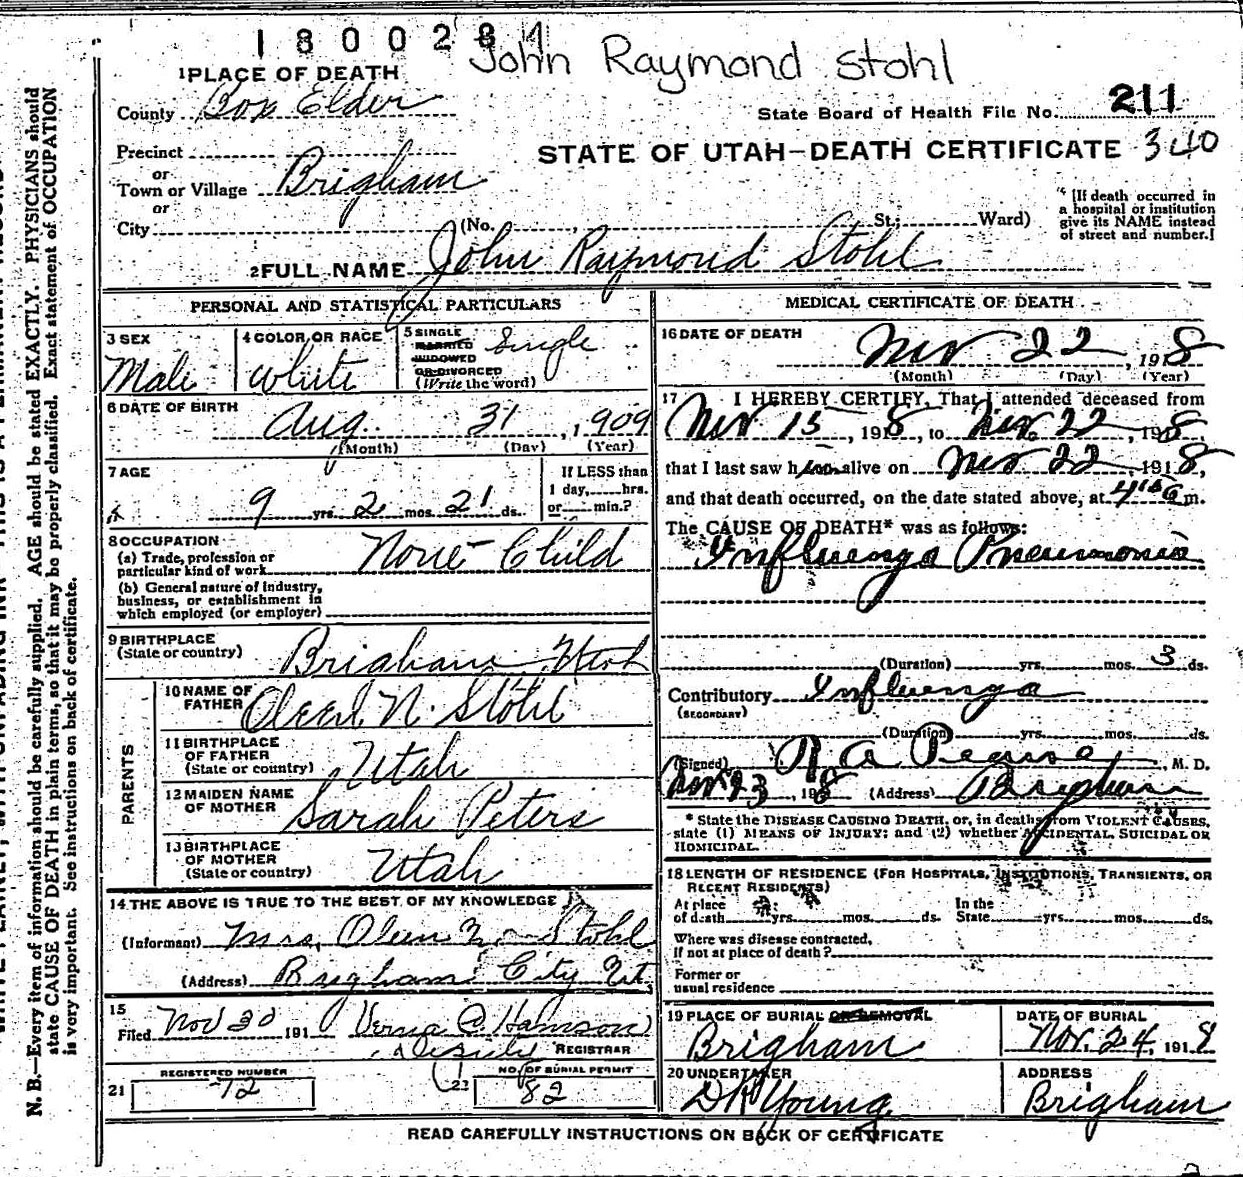 1800284
John Raymond Stohl
1 PLACE OF DEATH
County Box Elder
State Board of Health File No. 211
Precinct
STATE OF UTAH—DEATH CERTIFICATE 340
or
Town or Village Brigham
or
City (No. St; Ward)
[If death occurred in
a hospital or institution
give its NAME instead
of street and number.]
2 FULL NAME John Raymond Stohl
PERSONAL AND STATISTICAL PARTICULARS
3 SEX
Male
4 COLOR OR RACE
White
5 SINGLE
MARRIED
WIDOWED
OR DIVORCED
(Write the word)
Single
6 DATE OF BIRTH
Aug. 31, 1909
(Month) (Day) (Year)
7 AGE
9 yrs. 2 mos. 21 ds.
If LESS than
1 day, hrs.
or min.?
8 OCCUPATION
(a) Trade, profession or
particular kind of work None Child
(b) General nature of industry,
business, or establishment in
which employed (or employer)
9 BIRTHPLACE
(State or country) Brigham Utah
PARENTS
10 NAME OF
FATHER N. Stohl
11 BIRTHPLACE
OF FATHER
(State or country) Utah
12 MAIDEN NAME
OF MOTHER Sarah Peters
13 BIRTHPLACE
OF MOTHER
(State or country) Utah
14 THE ABOVE IS TRUE TO THE BEST OF MY KNOWLEDGE
(Informant) Mrs. Oleen N. Stohl
(Address) Brigham City Ut.
15
Filed Nov 30 191 Verna
Deputy REGISTRAR
21 REGISTERED NUMBER
72
22 NO. OF BURIAL PERMIT
82
MEDICAL CERTIFICATE OF DEATH
16 DATE OF DEATH
Nov 22, 1918
(Month) (Day) (Year)
17 I HEREBY CERTIFY, That I attended deceased from
Nov 15, 1918, to Nov. 22, 1918,
that I last saw him alive on Nov 22, 1918,
and that death occurred, on the date stated above, at m.
The CAUSE OF DEATH* was as follows:
Influenza Pneumonia
(Duration) yrs. mos. 3 ds.
Contributory Influenza
(SECONDARY)
(Duration) yrs. mos. ds.
(Signed) R A Pearse, M. D.
Nov 23, 1918 (Address) Brigham
* State the DISEASE CAUSING DEATH, or, in deaths from VIOLENT CAUSES,
state (1) MEANS OF INJURY; and (2) whether ACCIDENTAL, SUICIDAL OR
HOMICIDAL.
18 LENGTH OF RESIDENCE (FOR HOSPITALS, INSTITUTIONS, TRANSIENTS, OR
RECENT RESIDENTS)
At place
of death yrs. mos. ds.
In the
State yrs. mos. ds.
Where was disease contracted,
if not at place of death?
Former or
usual residence
19 PLACE OF BURIAL OR REMOVAL
Brigham
DATE OF BURIAL
Nov. 24, 1918
20 UNDERTAKER
Young
ADDRESS
Brigham
READ CAREFULLY INSTRUCTIONS ON BACK OF CERTIFICATE
N. B.—Every item of information should be carefully supplied. AGE should be stated EXACTLY. PHYSICIANS should
state CAUSE OF DEATH in plain terms, so that it may be properly classified. Exact statement of OCCUPATION
is very important. See instructions on back of certificate.